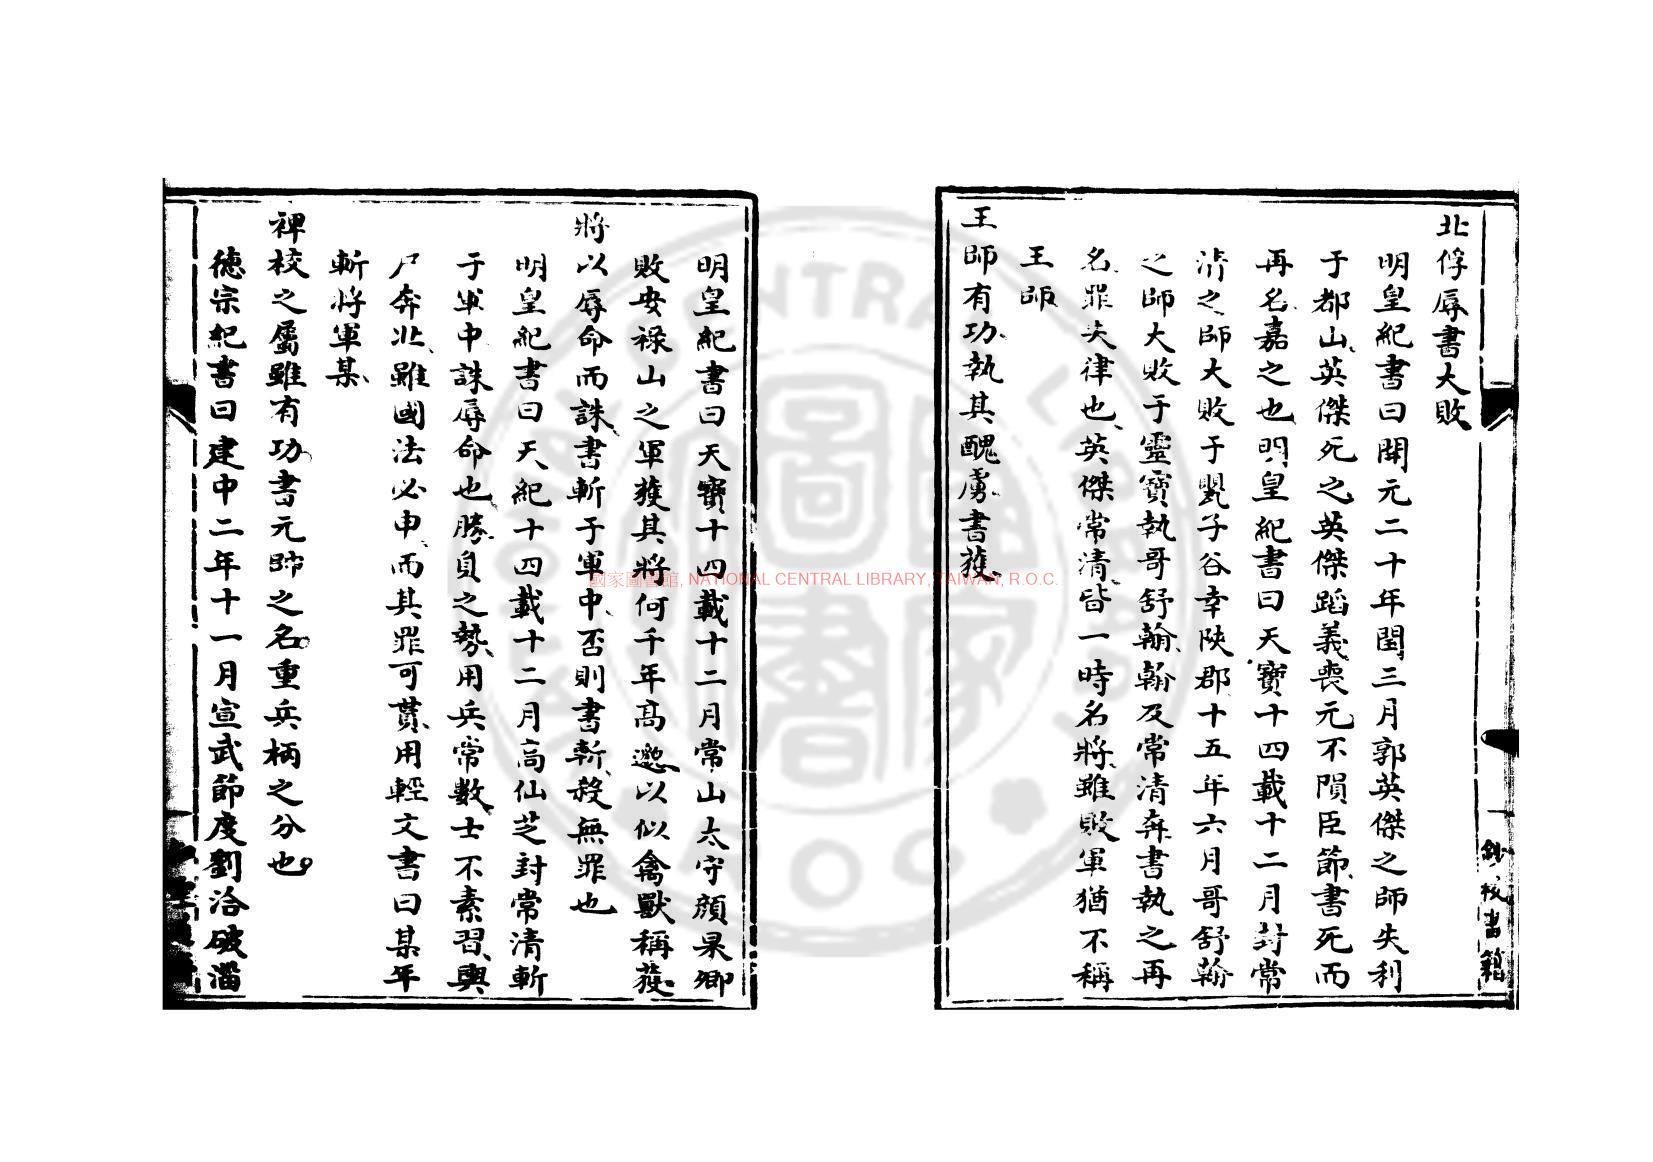 北俘辱書大敗
明皇紀書曰開元二十年閏三月郭英傑之師失利
于都山英傑死之英傑蹈義喪元不隕臣節書死而
再名嘉之也明皇紀書曰天寶十四載十二月封常
清之師大敗于甖子谷幸陝郡十五年六月哥舒翰
之師大敗于靈寶執哥舒翰翰及常清奔書執之再
名罪失律也英傑常清皆一時名將雖敗軍猶不稱
王師
王師有功執其醜虜書獲
明皇紀書曰天寶十四載十二月常山太守顏杲卿
敗安祿山之軍獲其將何千年高邈以似禽獸稱獲
將以辱命而誅書斬于軍中否則書斬殺無罪也
明皇紀書曰天紀十四載十二月高仙芝封常清斬
于軍中誅辱命也勝負之勢用兵常數士不素習輿
尸奔北雖國法必申而其罪可貰用輕文書曰某年
斬將軍某
裨校之屬雖有功書元帥之名重兵柄之分也
德宗紀書曰建中二年十一月宣武節度劉洽破淄
鈔校書籍
國家圖書館, NATIONAL CENTRAL LIBRARY, TAIWAN, R.O.C.